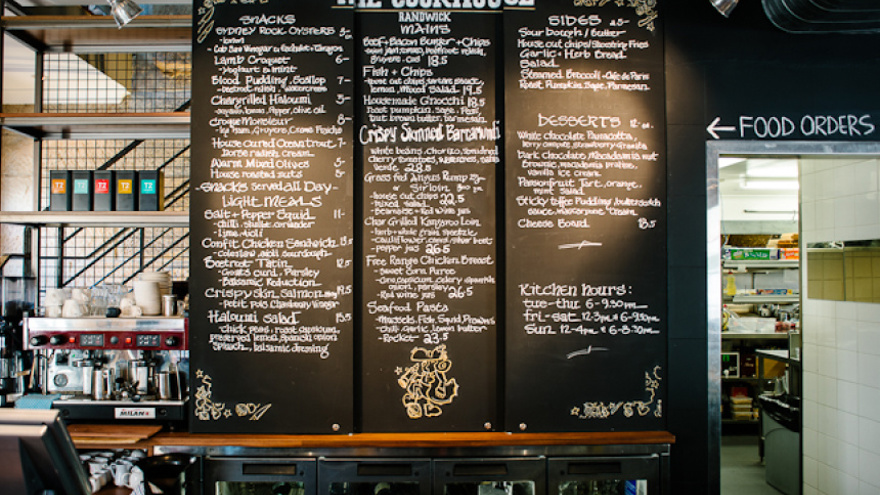 THE COOKHOUSE
RANDWICK
SNACKS
SYDNEY ROCK OYSTERS 3-
Lamb Croquet 6-
- Yoghurt + mint
Blood Pudding, Scallop 7-
Chargrilled Haloumi 5-
lemon, Pepper, olive oil
Croque Monsieur 8-
House Cured Ocean trout 7-
horse radish cream
Warm Mixed Olives 5-
House roasted nuts 5-
Snacks served all Day -
LIGHT MEALS
Salt + Pepper Squid 11-
- chilli, shallot, coriander
Lime aioli
Confit Chicken Sandwich 13.5
- coleslaw, aioli, sourdough
Beetroot Tatin 12.5
- Goats curd, Parsley
Balsamic Reduction
Crispy Skin Salmon 19.5
- Petit pois, Chardonnay Vinegar
Haloumi salad 15.5
chick peas, roast capsicum
preserved lemon, Spanish onion
balsamic dressing
MAINS
Beef + Bacon Burger + Chips
18.5
Fish + Chips
- house cut chips, tartare sauce,
lemon, Mixed Salad 19.5
Housemade Gnocchi 18.5
roast pumpkin, sage,
nut brown butter, parmesan
Crispy Skinned Barramundi
white beans, chorizo,
cherry tomatoes,
28.5
Grass fed Angus Rump
or Sirloin
- house cut chips
- mixed salad 29.5
- Bearnaise + Red wine jus
Char Grilled Kangaroo Loin
- herb + whole grain
- cauliflower
- Pepper jus 26.5
Free Range Chicken Breast
- Sweet Corn Puree
- Red wine jus 26.5
Seafood Pasta
- Mussels, Fish, Squid, Prawns
- chilli, garlic, Lemon butter
- Rocket 23.5
SIDES
Sour Dough / Butter
House cut chips / Shoestring Fries
Garlic + Herb Bread
Salad
Steamed Broccoli + Cafe de Paris
Roast Pumpkin, Sage, Parmesan
DESSERTS 12-
White Chocolate Pannacotta,
berry compote, strawberry granita
Dark Chocolate Macadamia nut
Brownie, macadamia praline,
vanilla ice cream
Passionfruit Tart, orange,
mint salad
Sticky toffee Pudding, butterscotch
sauce, mascarpone cream
Cheese Board 18.5
Kitchen hours:
tue-thu 6-9.30pm
fri-sat 12-3pm + 6-9.30pm
Sun 12-4pm + 6-8.30pm
← FOOD ORDERS
T2 T2 T2 T2 T2
MILANO